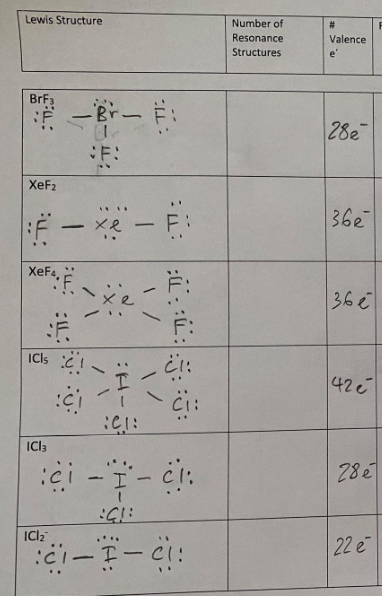 Lewis Structure
Number of
Resonance
Structures
#
Valence
e⁻
BrF₃
:F̈ — Br — F̈:
:F̈:
28e⁻
XeF₂
:F̈ — Xe — F̈:
36e⁻
XeF₄
:F̈ F̈:
Xe
:F̈ F̈:
36e⁻
ICl₅
:C̈l C̈l:
I
:C̈l C̈l:
:C̈l:
42e⁻
ICl₃
:C̈l — I — C̈l:
:C̈l:
28e⁻
ICl₂⁻
:C̈l — I — C̈l:
22e⁻